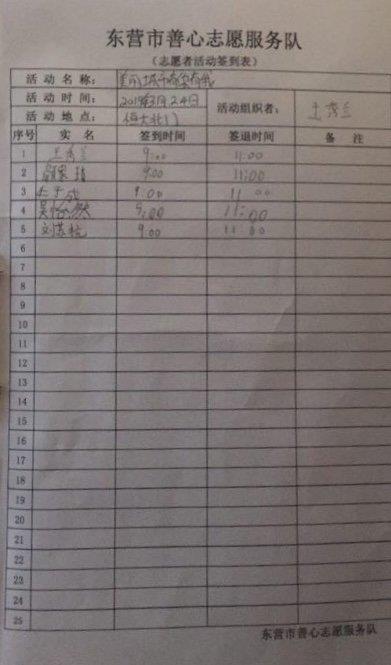 东营市善心志愿服务队
(志愿者活动签到表)
活动名称： 美丽城市有你有我
活动时间： 2019年3月24日 活动组织者： 王秀兰
活动地点： 恒大北门
序号 实名 签到时间 签退时间 备注
1 王秀兰 9:00 11:00
2 9:00 11:00
3 9:00 11:00
4 吴悠然 9:00 11:00
5 刘苏杭 9:00 11:00
6
7
8
9
10
11
12
13
14
15
16
17
18
19
20
21
22
23
24
25
东营市善心志愿服务队